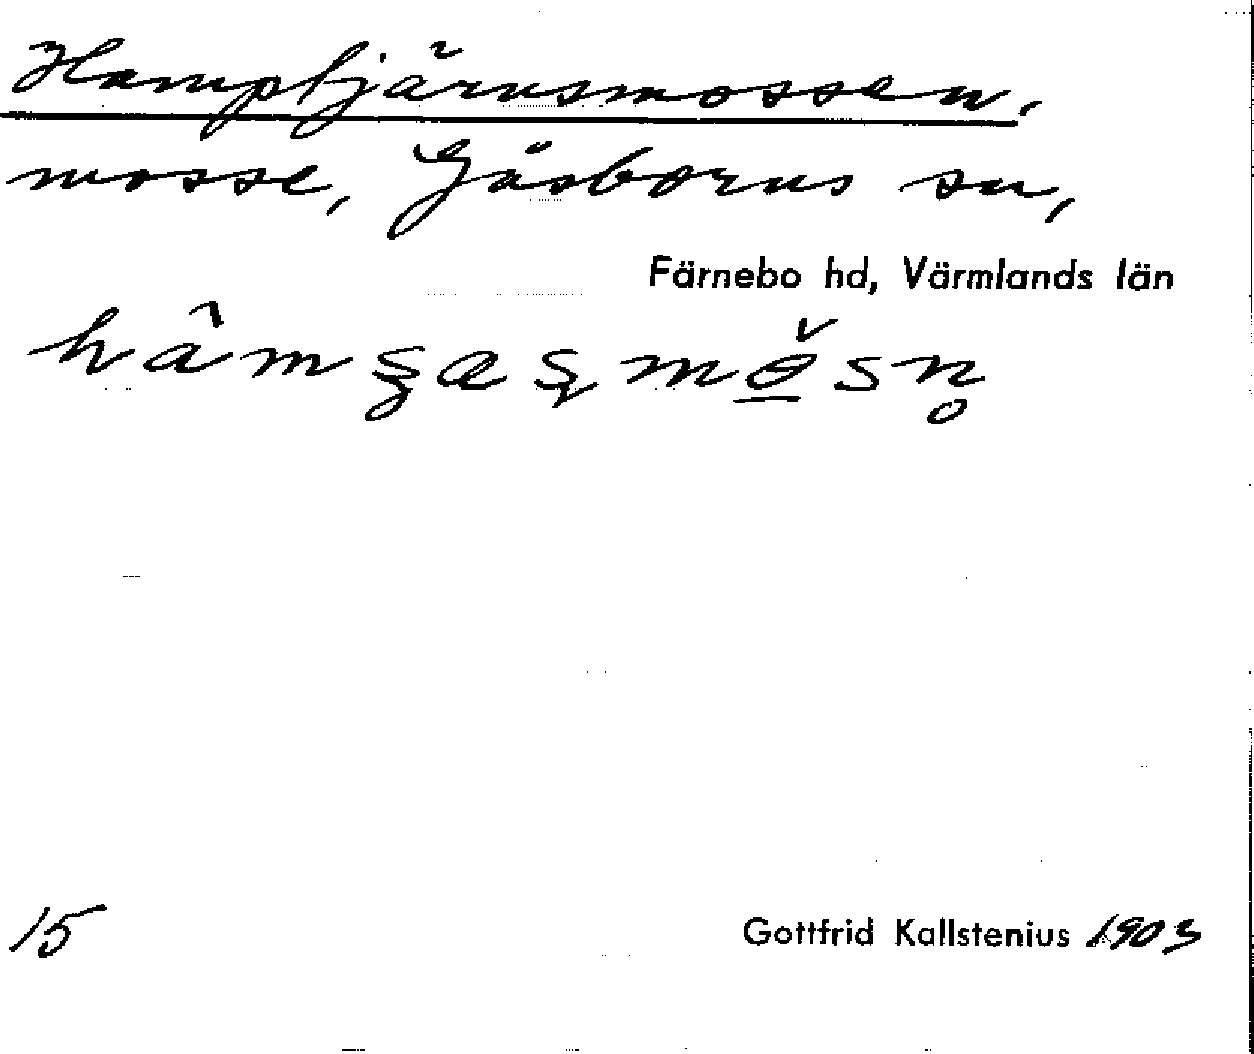 Hamptjärnsmossen.
mosse, Gåsborns sn,
Färnebo hd, Värmlands län
15
Gottfrid Kallstenius 1903